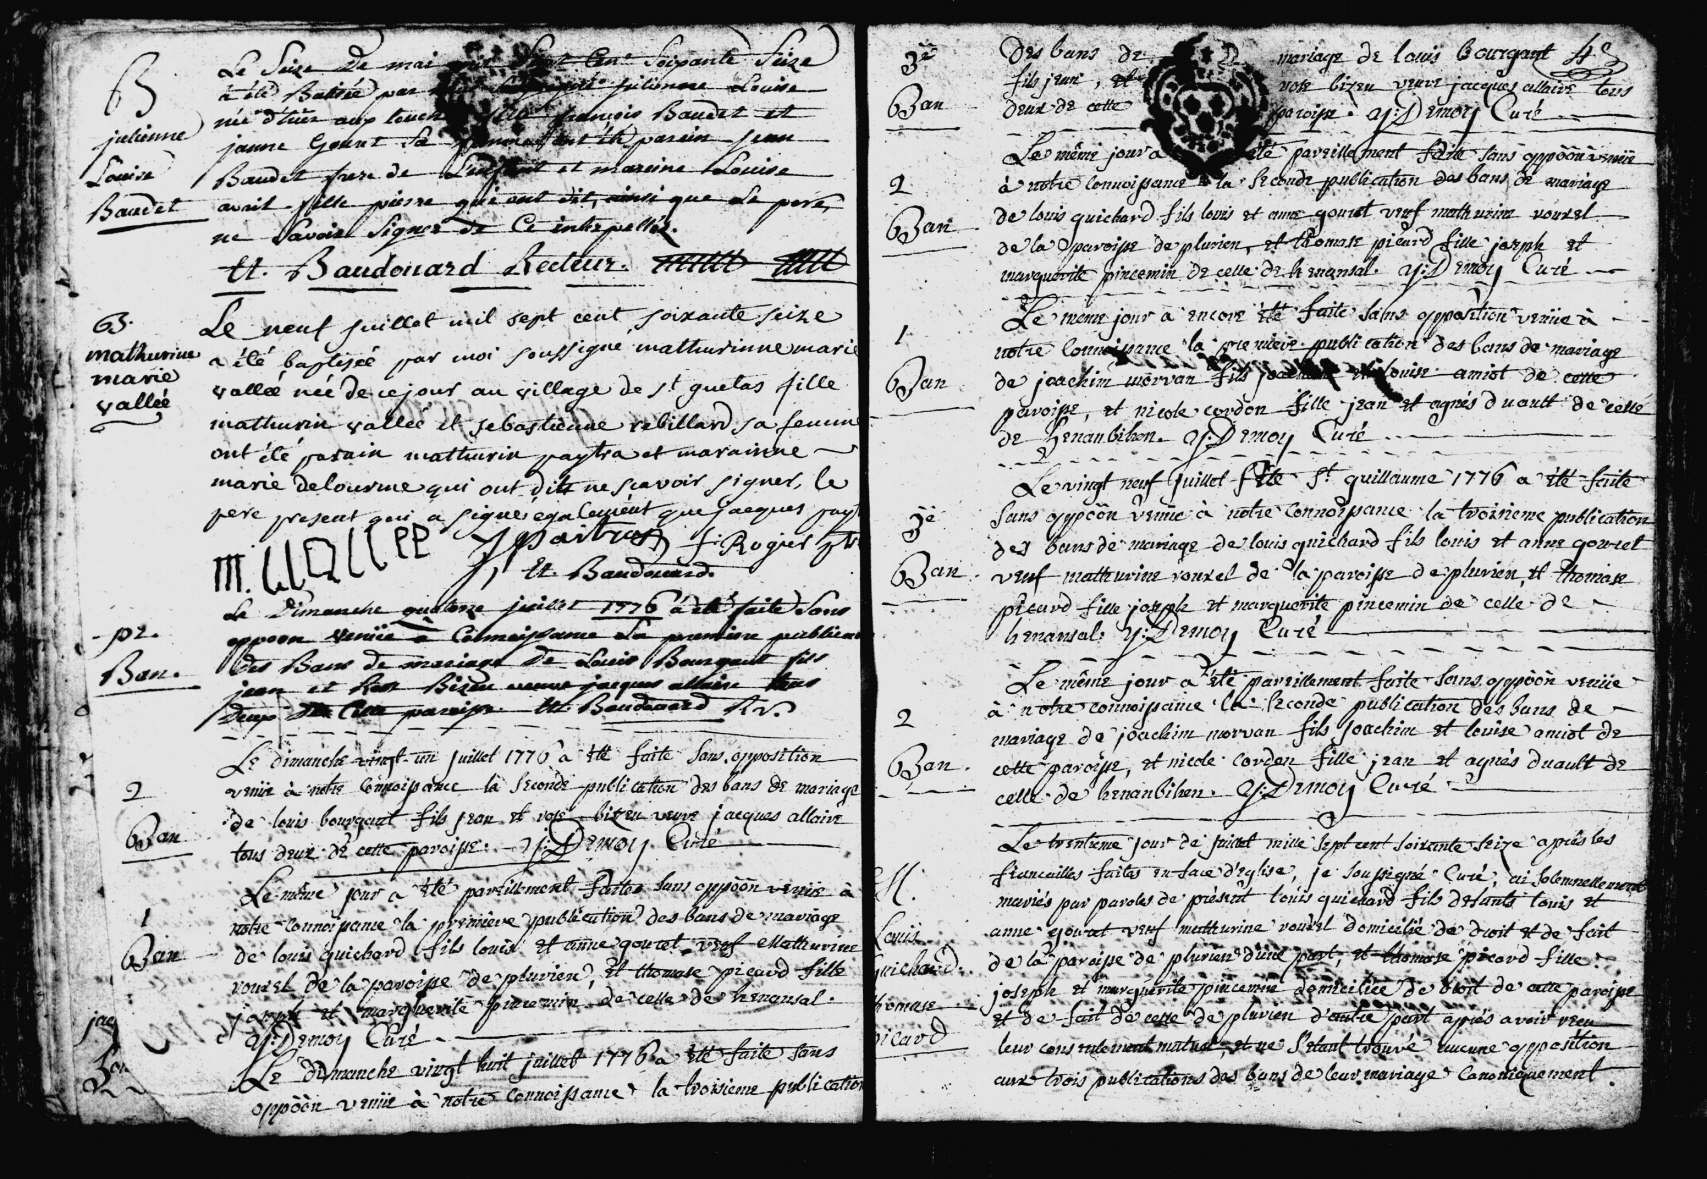 B
julienne
Louise
Baudet
Le Seize de mai mil Sept Cent Soixante Seize
a été Batisée par julienne Louise
née d'hier aux fille françois Baudet et
janne Gouret Sa femme ont été parein jean
Baudet frere de L'enfant et mareine Louise
avril fille pierre qui ont dit, ainsi que Le pere,
ne Savoir Signer de Ce interpellés.
tt. Baudouard Recteur.
B.
mathurine
marie
vallée
Le neuf juillet mil sept cent soixante seize
a été baptisée par moi soussigné mathurinne marie
vallée née de ce jour au village de st guetas fille
mathurin vallée et sebastienne rebillard sa femme
ont été parain mathurin paytra et marainne
marie delourme qui ont dit ne sçavoir signer, le
pere present qui a signé également que jacques payt
m. vallee J paitra f: Rogier ptr
tt. Baudouard.
pr.
Ban.
Le Dimanche quatorze juillet 1776 a été faite Sans
oppoon venüe à Connoissance La premiere publica
des Bans de mariage De Louis Bourgaut fils
jean et Rose Bizeu veuve jacques allaire tous
deux de Cette paroisse. tt Baudouard Rr.
2
Ban
Le dimanche vingt-un juillet 1776 a été faite Sans opposition
venüe à notre Connoissance la Seconde publication des bans de mariage
de louis bourgaut fils jean et rose bizeu veuve jacques allaire
tous deux de cette paroisse. y: Demoy Curé
1
Ban
Le même jour a été pareillement faitte Sans oppoön venüe à
notre Connoissance la premiere publication des bans de mariage
de louis guichard fils louis et anne gouret veuf Mathurine
rouxel de la paroisse de plurien, et thomase picard fille
joseph et marguerite pincemin de celle de henansal.
y: Demoy Curé.
jac
3e
Le Dimanche vingt huit juillet 1776 a été faite sans
oppoön venüe à notre Connoissance la troisieme publication
3e
Ban
des bans de mariage de louis Bourgant 48
fils jean, et rose bizeu veuve jacques allaire tous
deux de cette paroisse. y: Demoy Curé
2
Ban
Le même jour a été pareillement faite Sans oppoön venüe
à notre Connoissance la Seconde publication des bans de mariage
de louis guichard fils louis et anne gouret veuf mathurine rouxel
de la paroisse de plurien, et thomase picard fille joseph et
marguerite pincemin de celle de henansal. y: Demoy Curé
1
Ban
Le même jour a encore été faite sans opposition venüe à
notre Connoissance la premiere publication des bans de mariage
de joachim morvan fils joachim et louise amiot de cette
paroisse, et nicole cordon fille jean et agnés duault de celle
de henanbihen. y: Demoy Curé
3e
Ban
Le vingt neuf juillet fête St guillaume 1776 a été faite
Sans oppoön venüe à notre Connoissance la troisieme publication
des bans de mariage de louis guichard fils louis et anne gouret
veuf mathurine rouxel de la paroisse de plurien, et thomase
picard fille joseph et marguerite pincemin de celle de
henansal. y: Demoy Curé
2
Ban.
Le même jour a été pareillement faite Sans oppoön venüe
à notre connoissance la Seconde publication des bans de
mariage de joachim morvan fils joachim et louise amiot de
cette paroisse, et nicole cordon fille jean et agnés duault de
celle de henanbihen. y: Demoy Curé
M.
Louis
guichard
thomase
picard
Le trentieme jour de juillet mille sept cent soixante seize aprés les
fiancailles faites en face d'eglise, je soussigné Curé, ai solemnellement
mariés par paroles de présent louis guichard fils defunts louis et
anne gouret veuf mathurine rouxel domicilié de droit et de fait
de la paroisse de plurien d'une part, et thomase picard fille
joseph et marguerite pincemin domiciliée de droit de cette paroisse
et de fait de cette de plurien d'autre part aprés avoir reçu
leur consentement mutuel, et ne S'étant trouvé aucune opposition
aux trois publications des bans de leur mariage Canoniquement